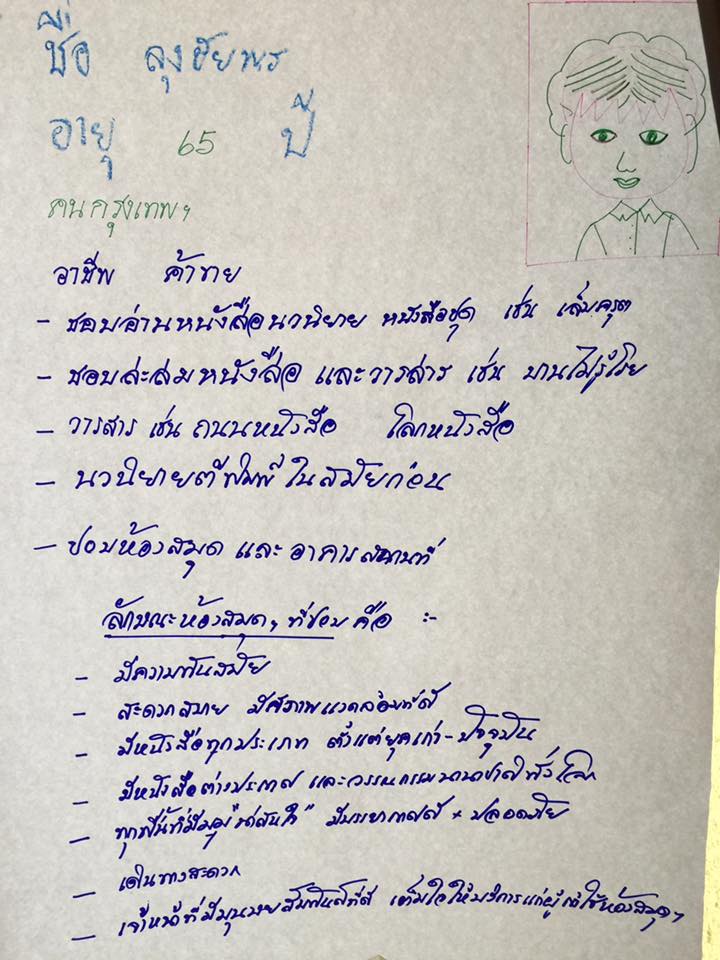 ชื่อ ลุงชัยพร
อายุ 65 ปี
คนกรุงเทพฯ
อาชีพ ค้าขาย
- ชอบอ่านหนังสือนวนิยาย หนังสือชุด เช่น เล็บครุฑ
- ชอบสะสมหนังสือ และวารสาร เช่น บานไม่รู้โรย
- วารสาร เช่น ถนนหนังสือ โลกหนังสือ
- นวนิยายตีพิมพ์ในสมัยก่อน
- ชอบห้องสมุด และ อาคารสถานที่
ลักษณะห้องสมุดฯ ที่ชอบ คือ :-
- มีความทันสมัย
- สะดวกสบาย มีสภาพแวดล้อมที่ดี
- มีหนังสือทุกประเภท ตั้งแต่ยุคเก่า - ปัจจุบัน
- มีหนังสือต่างประเทศ และวรรณกรรมนานาชาติทั่วโลก
- ทุกพื้นที่มีมุม "น่าสนใจ" มีบรรยากาศดี + ปลอดภัย
- เดินทางสะดวก
- เจ้าหน้าที่มีมนุษยสัมพันธ์ที่ดี เต็มใจให้บริการแก่ผู้เข้าใช้ห้องสมุดฯ